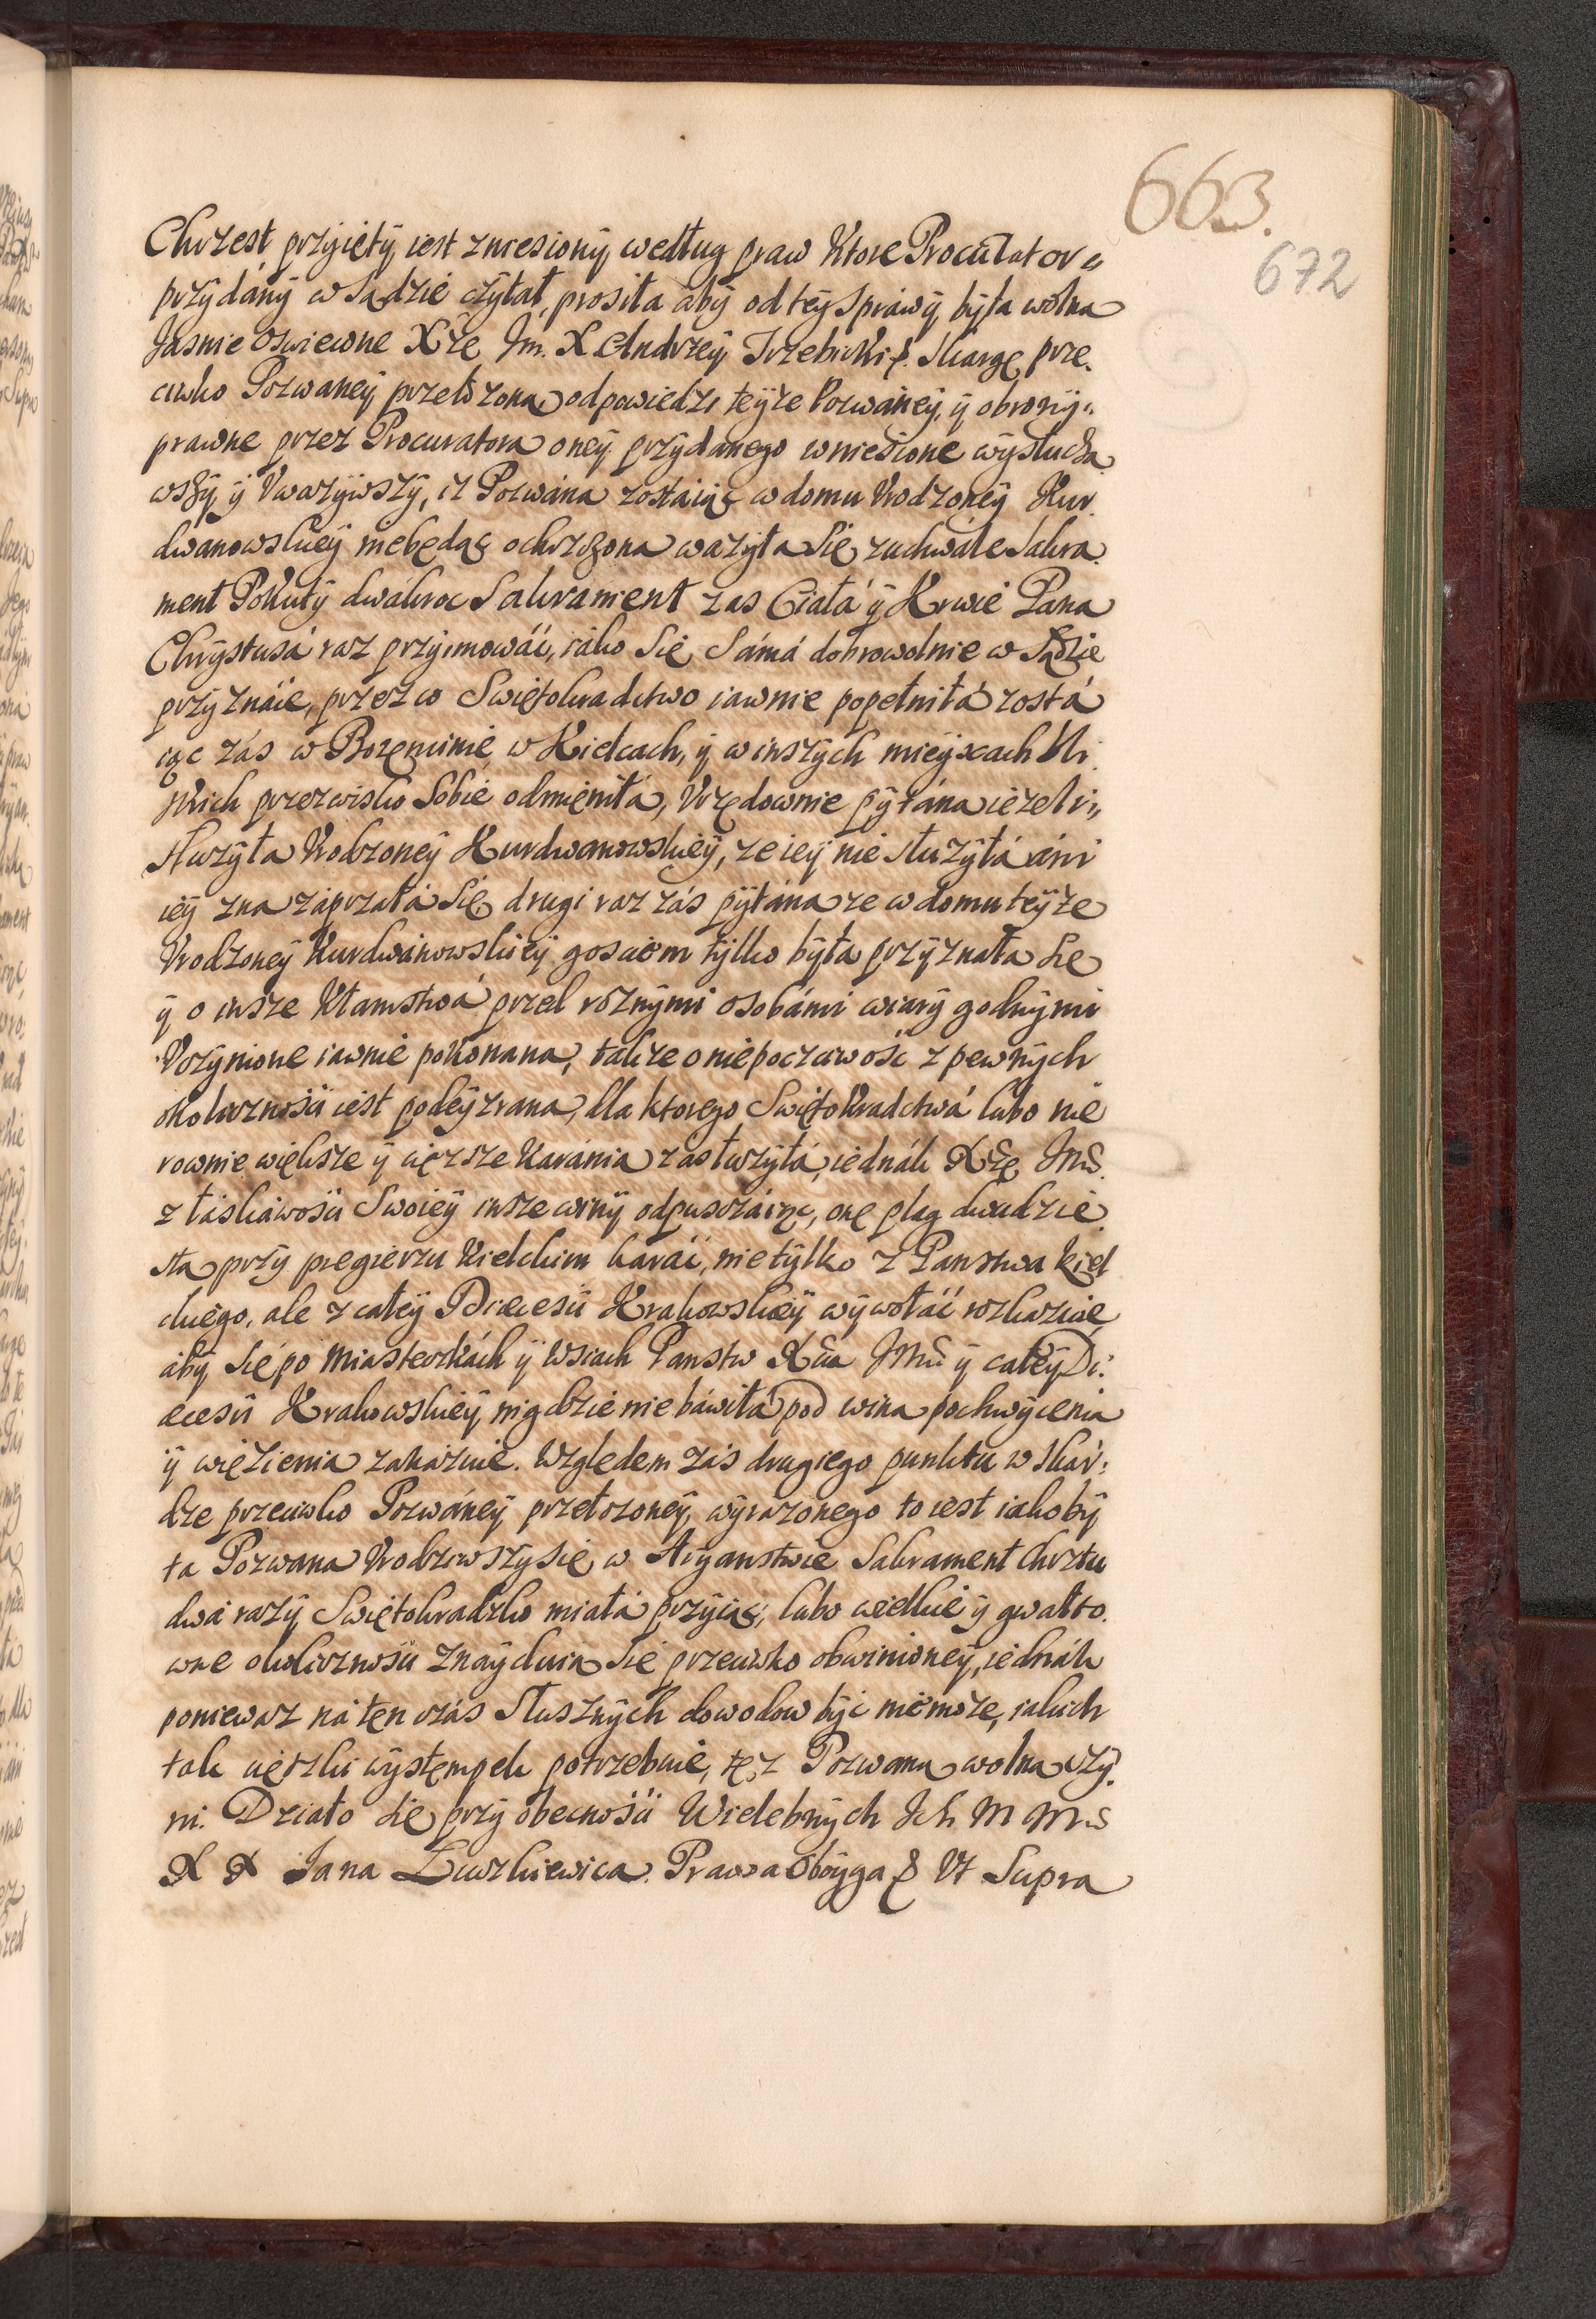 663.
672
Chrzest przyięty iest zniesiony według praw ktore Procurator
przydány w Sądzie czytał, prosiła aby od tey sprawy była wolna
Jasnie Oswiecone Xże Jm. X Andrzey Trzebicki &. Skargę prze.
ciwko Pozwaney przełozoną odpowiedzi teyże Pozwáney, y obrony
prawne przez Procuratora oney przydanego wniesione wysłucha
wszy, y Uwazywszy, iz Pozwána zostaiąc w domu Urodzoney Kur.
dwanowskiey niebędąc ochrzszona wazyła się zuchwale Sakra.
ment Pokuty dwákroc Sakrament zas Ciałá y Krwie Pana
Chrystusá raz przyimowáć, iáko się Sámá dobrowolnie w Sądzie
przyznáie, przez co Swiętokradctwo iawnie popełniłá zostá
iąc zás w Bozęcinie, w Kielcach, y w inszych mieyscach Kil
kuich przezwisko Sobie odmieniłá, Urzędownie pytána ieżeli
słuzyła Urodzoney Kurdwanowskiey, ze iey nie słuzyłá áni
iey zna záprzałá się, drugi raz zás pytána ze w domu teyże
Urodzoney Kurdwánowskiey gosciem tylko była przyznała Sie
y o insze kłamstwá przed roznymi osobámi wiary godnymi
Uczynione iawnie pokonana, także o niepoczciwość z pewnych
okolicznosci iest podeyzrana, dla ktorego Swiętokradctwá lubo nie
rownie większe y cięzsze karánia zásłuzyłá, iednák Xże Jms.
z łáskáwości Swoiey insze winy odpuszczáiąc, onę plag dwadzie.
sta przy pręgierzu Kieleckim karáć, nie tylko z Panstwa kiel
ckiego, ale z całey Diœcesii Krakowskiey wywołáć rozkazuie,
áby się po Miasteczkách y Wsiach Panstw Xcia Jmci y całey Di:
œcesii Krakowskiey nigdzie nie báwiłá pod winą pochwycenia
y więzienia zakázuie. Względem zás drugiego punktu w skár:
dze przeciwko Pozwáney przełozoney, wyrazonego to iest iakoby
ta Pozwana Urodziwszy się, w Aryanstwie Sakrament Chrztu
dwá rázy Swiętokradzko miałá przyiąć, lubo wielkie y gwałto.
wne okolicznosci znayduią sie przeciwko obwinioney, iednák
poniewaz ná ten czás słusznych dowodow być niemoże, iakich
tak cięzki występek potrzebuie, tęz Pozwaną wolną czy.
ni. Działo sie przy obecności Wielebnych Ich M Mciow
X X Jana Łuczkiewica Prawa Oboyga & Ut Supra